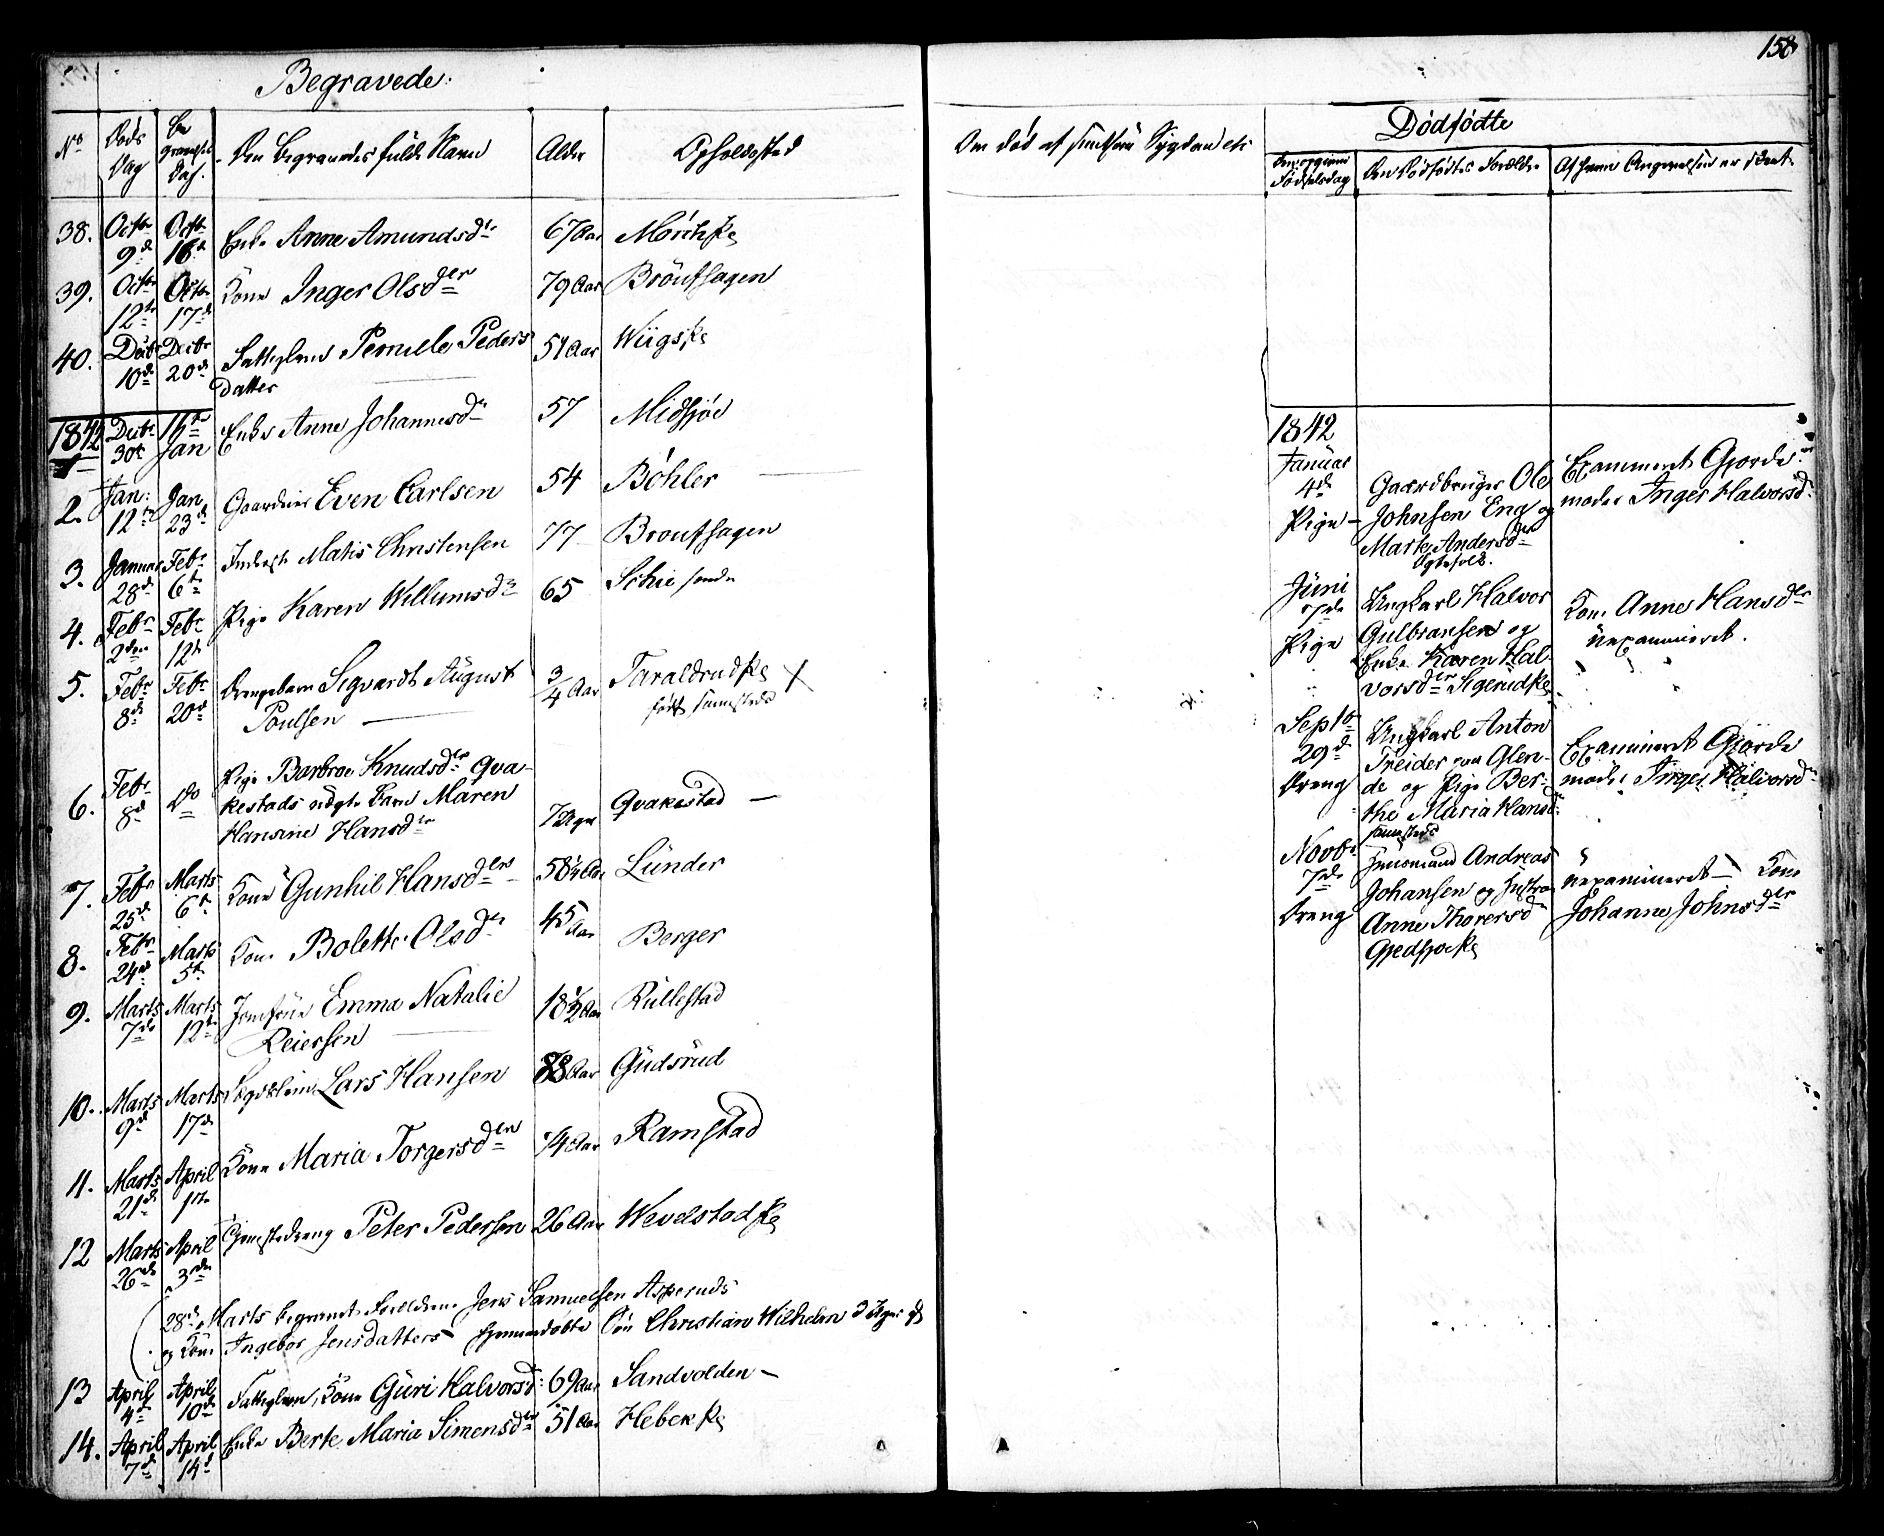 158
Begravede:
No Døds Dag Begravelses Dag. Den begravedes fulde Navn Alder Opholdssted
38. Octbr 9de Octbr 16de Enke Anne Amundsdtr 67 Aar Mörkske
39. Octbr 12te Octbr 17de Kone Inger Olsdter 79 Aar
40. Decbr 10de Decbr 20de Fattiglem Pernille Peders 51 Aar Wiigske
datter
1842 1 Decbr 30te 16de Jan Enke Anne Johannesdtr 57 Midsjöe
2. Jan: 12te Jan 23de Gaardmd Even Carlsen 54 Böhler
3. Januar 28de Febr 6te Inderst Matis Christensen 77
4. Febr 2den Febr 12te Pige Karen Willumsdtr 65 Schie
5. Febr 8de Febr 20de Drengebarn Sigvardt August 3/4 Aar Taraldrudke X
Poulsen født sammesteds
6. Febr 8de Do Pige Barbroe Knudsdtr Qva-
kestads uægte Barn Maren
Hansine Hansdtr 7 Uger Qvakestad
7. Febr 25de Marts 6te Kone Gunhil Hansdter 58 1/2 Aar Lunder
8. Febr 24de Marts 5te Kone Bolette Olsdtr 45 Aar Berger
9. Marts 7de Marts 12te Jomfrue Emma Natalie 18 1/2 Aar Rullestad
Reiersen
10. Marts 9de Marts 17de Lars Hansen 88 Aar Gudsrud
11. Marts 21de April 1ste Kone Maria Torgersdter 74 Aar Ramstad
12 Marts 26de April 3die Tjenestedreng Peter Pedersen 26 Aar Wevelstadke
28de Marts begravet Forældrene Jens Samuelsen Asperuds
og Kone Ingebor Jensdatters hjemmedøbte Søn Christian Wilhelm 3 Uger gl
13 April 4de April 10de Fattiglem, Kone Guri Halvorsd: 69 Aar Sandvolden
14. April 7de April 14de Enke Berte Maria Simensdtr 51 Aar Hebekke
Om død af smitsom Sygdom etc
Dødfødte
Fødselsdag Den Dødfødtes Forældre Af hvem Angivelsen er skeet
1842
Januar
4de
Pige
Gaardbruger Ole
Johnsen Eng og
Marte Andersdtr
Egtefolk.
Examineret Gjorde-
moder Inger Halvorsd:
Juni
7de
Pige
Ungkarl Halvor
Gulbransen og
Enke Karen Hal-
vorsdtr Sigerudke
Kone Anne Hansdtr
uexamineret.
Septbr
29de
Dreng
Ungkarl Anton
Treider paa Glen-
de og Pige Ber-
the Maria Hansd:
sammesteds
Examineret Gjorde
moder Inger Halvorsd
Novbr
7de
Dreng
Huusmand Andreas
Johansen og Hustru
Anne Thorersd
Gjedsjøeke
uexamineret Kone
Johanne Johnsdter